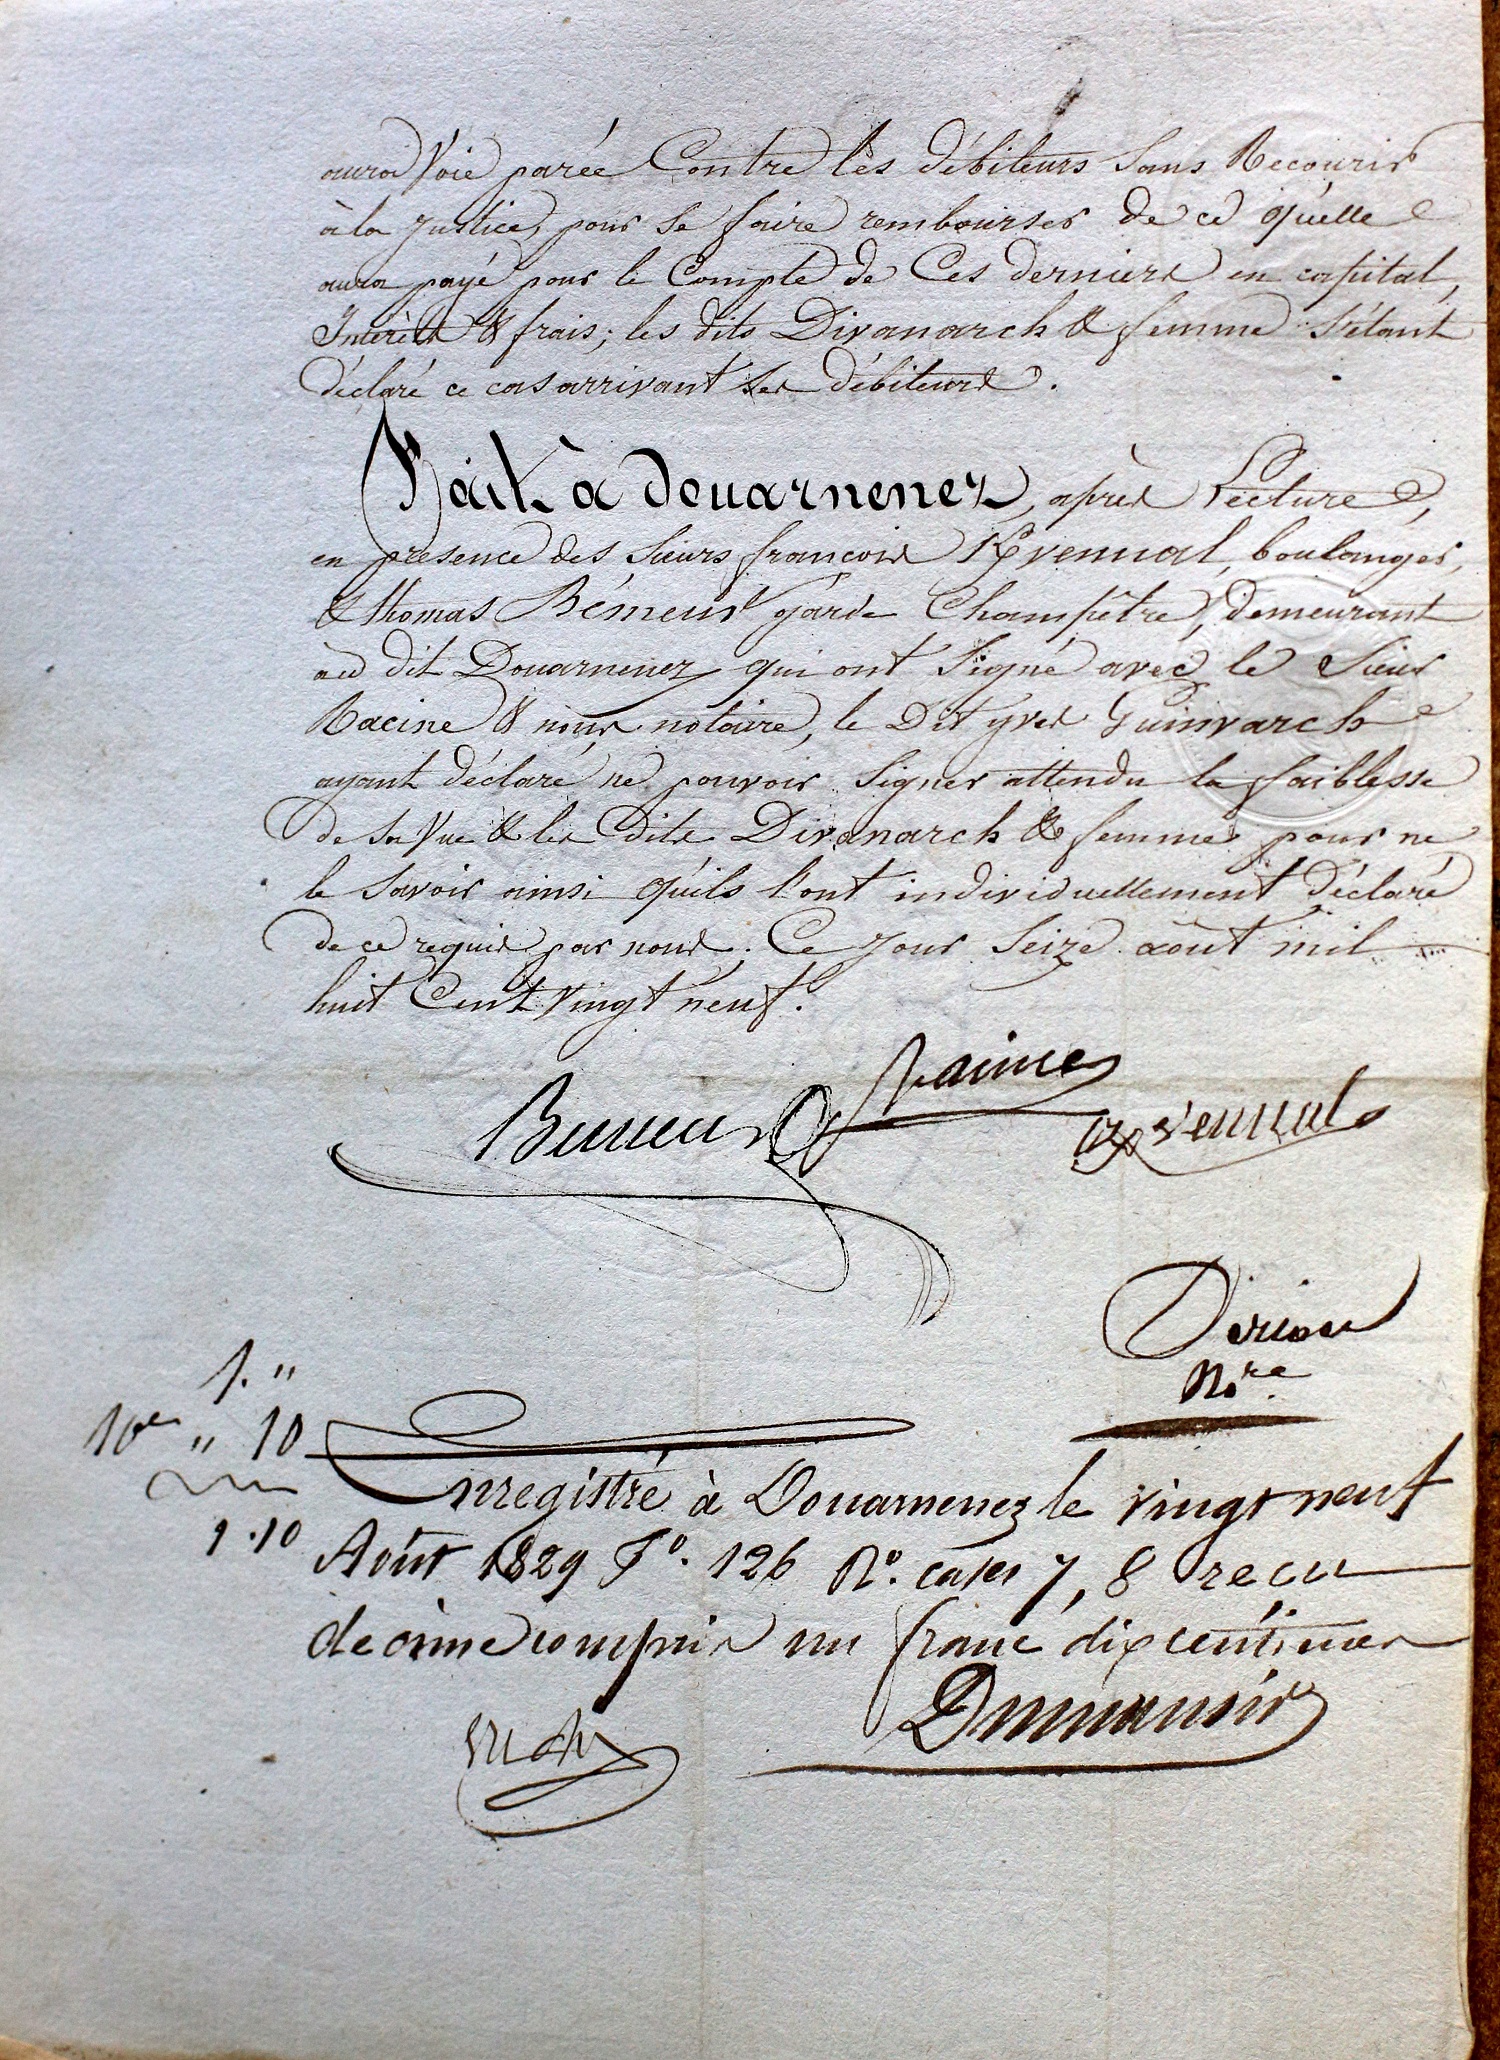 aura Voie parée Contre les débiteurs Sans Recourir
à la Justice, pour se faire rembourser de ce qu'elle
aura payé pour le Compte de Ces derniers en capital,
Intérêts & frais; les dits Divanarch & femme s'étant
déclaré ce cas arrivant ses débiteurs.
Fait à Douarnenez, après Lecture,
en présence des Sieurs françois Kvennal, boulanger,
& thomas Bémeur garde Champêtre, demeurant
au dit Douarnenez qui ont Signé avec le Sieur
Racine & nous notaire, le Dit yves Guinvarch
ayant déclaré ne pouvoir Signer attendu la faiblesse
de sa Vue & les dits Divanarch & femme pour ne
le Savoir ainsi qu'ils l'ont individuellement déclaré
de ce requis par nous. Ce Jour Seize août mil
huit Cent Vingt neuf.
Racine
Bémeur
Kvennal
Nre
1. "
10e " 10
1.10
Enregistré à Douarnenez le vingt neuf
Août 1829 Fo. 126 Ro. cases 7, 8 reçu
decime compris un franc dix centimes